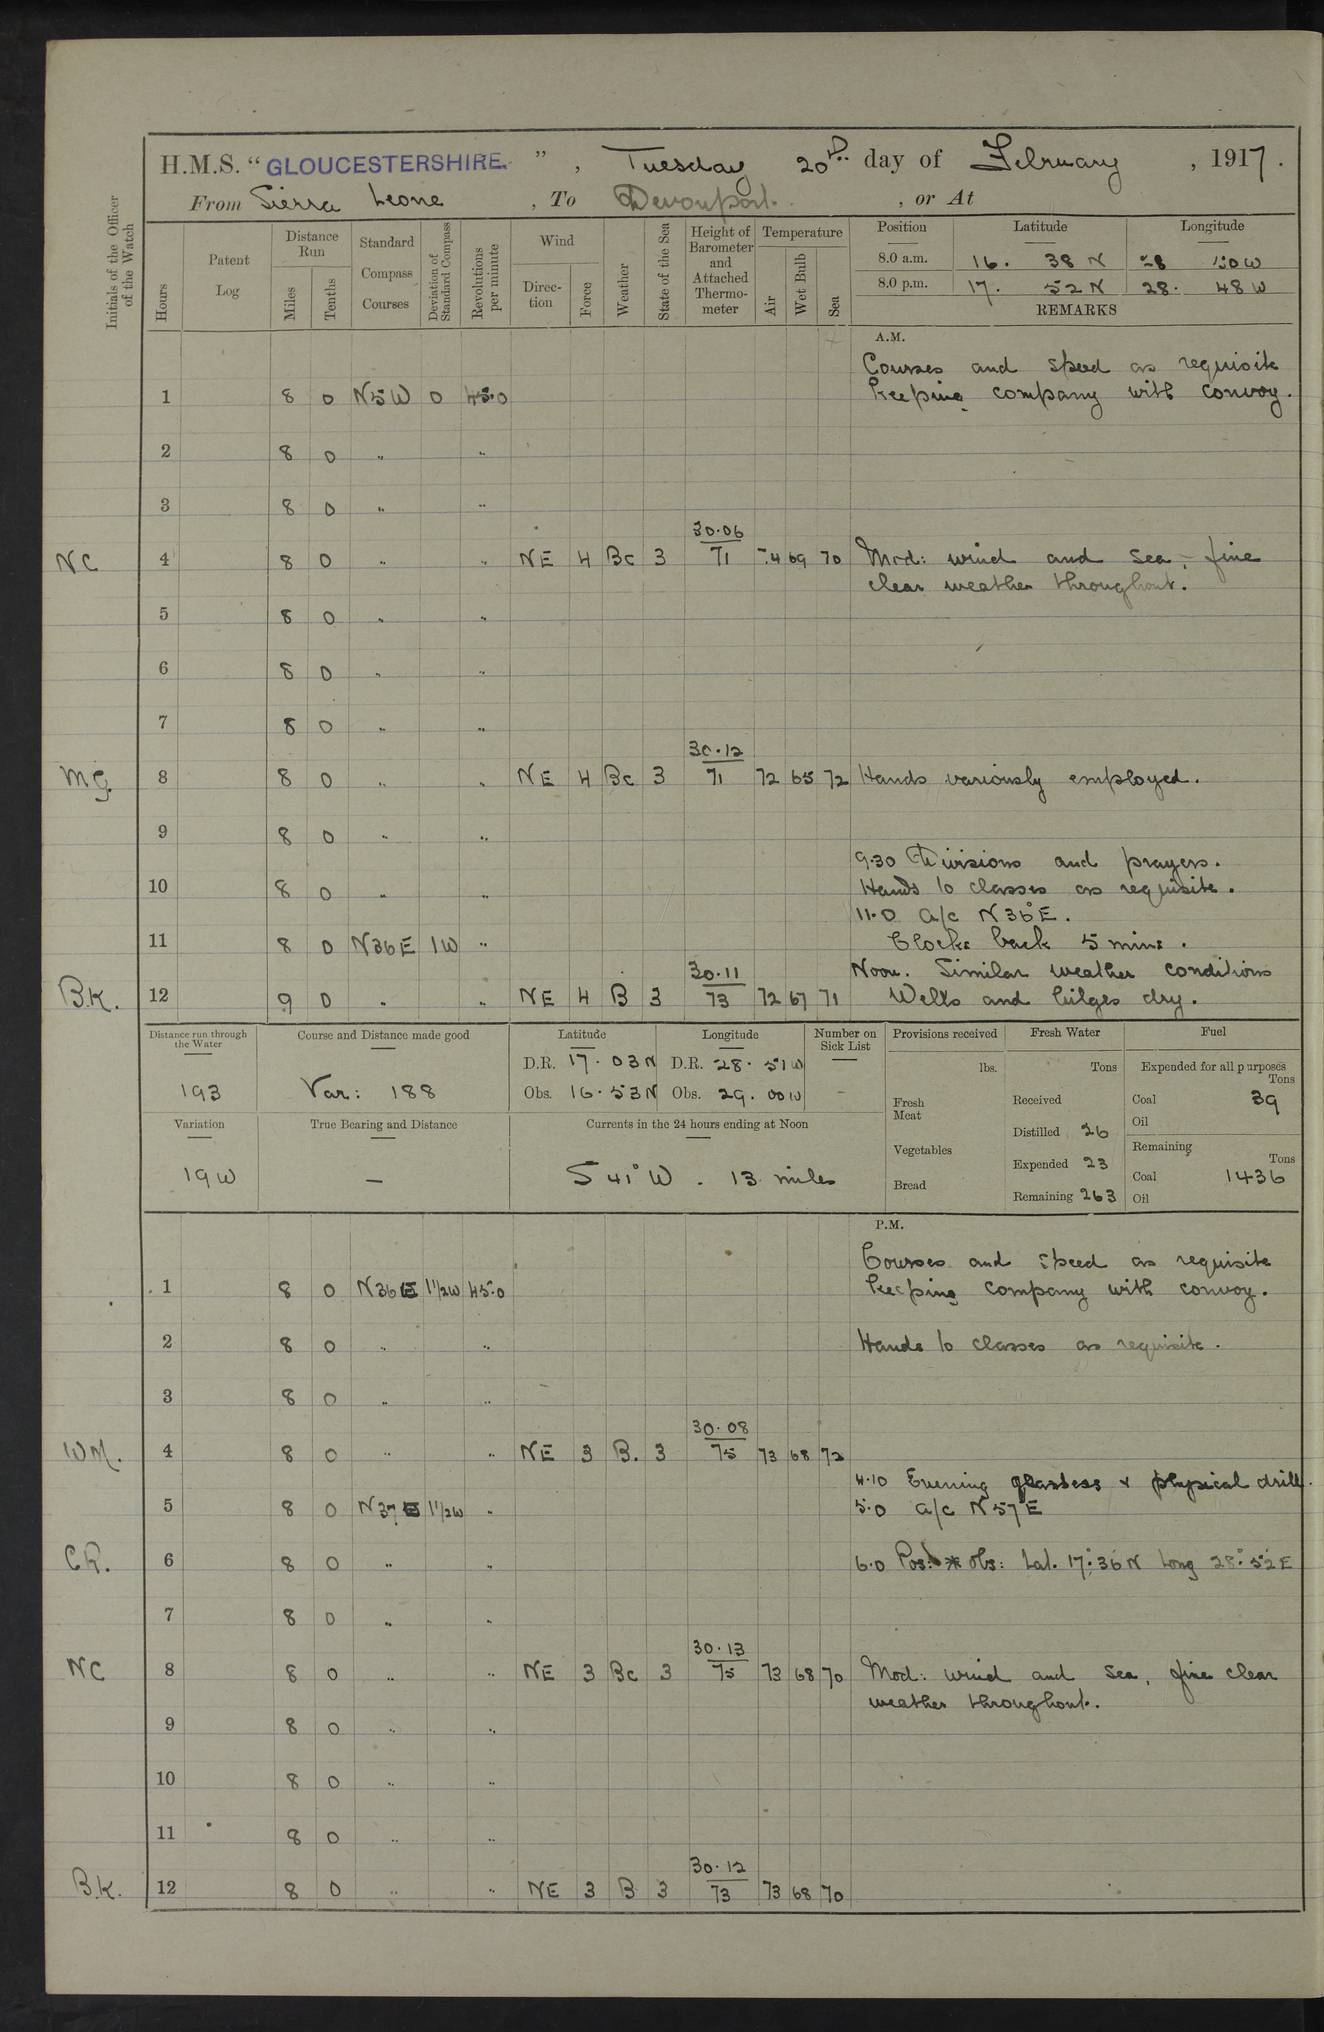 H.M.S. “GLOUCESTERSHIRE.”, Tuesday 20th day of February, 1917.
From Sierra Leone, To Devonport., or At
Initials of the Officer of the Watch
Hours
Patent Log
Distance Run
Miles
Tenths
Standard Compass Courses
Deviation of Standard Compass
Revolutions per minute
Wind
Direction
Force
Weather
State of the Sea
Height of Barometer and Attached Thermometer
Temperature
Air
Wet Bulb
Sea
Position Latitude Longitude
8.0 a.m. 16. 38 N 28 50 W
8.0 p.m. 17. 52 N 28. 48 W
REMARKS
A.M.
Courses and speed as requisite
1 8 0 N5W 0 45.0 Keeping company with convoy.
2 8 0 " "
3 8 0 " "
30.06
NC 4 8 0 " " NE 4 Bc 3 71 74 69 70 Mod: wind and sea, fine
clear weather throughout.
5 8 0 " "
6 8 0 " "
7 8 0 " "
30.12
MG. 8 8 0 " " NE 4 Bc 3 71 72 65 72 Hands variously employed.
9 8 0 " "
9.30 Divisions and prayers.
10 8 0 " " Hands to classes as requisite.
11.0 a/c N36°E.
11 8 0 N36E 1W " Clocks back 5 mins.
30.11 Noon. Similar weather conditions
B.K. 12 9 0 " " NE 4 B 3 73 72 67 71 Wells and bilges dry.
Distance run through the Water
193
Course and Distance made good
Var: 188
Latitude
D.R. 17. 03N
Obs. 16. 53N
Longitude
D.R. 28. 51W
Obs. 29. 00W
Number on Sick List
-
Provisions received
lbs.
Fresh Meat
Vegetables
Bread
Fresh Water
Tons
Received
Distilled 26
Expended 23
Remaining 263
Fuel
Expended for all purposes
Tons
Coal 39
Oil
Remaining
Tons
Coal 1436
Oil
Variation
19W
True Bearing and Distance
—
Currents in the 24 hours ending at Noon
S 41° W. 13 miles
P.M.
Courses and speed as requisite
1 8 0 N36E 1½W 45.0 Keeping company with convoy.
2 8 0 " " Hands to classes as requisite.
3 8 0 " "
30.08
WM. 4 8 0 " " NE 3 B. 3 75 73 68 72
4.10 Evening quarters & physical drill.
5 8 0 N37E 1½W " 5.0 a/c N57°E
CR. 6 8 0 " " 6.0 Pos: * Obs: Lat. 17°36'N Long 28°52'E
7 8 0 " "
30.13
NC 8 8 0 " " NE 3 Bc 3 75 73 68 70 Mod: wind and sea, fine clear
weather throughout.
9 8 0 " "
10 8 0 " "
11 8 0 " "
30.12
B.K. 12 8 0 " " NE 3 B 3 73 73 68 70